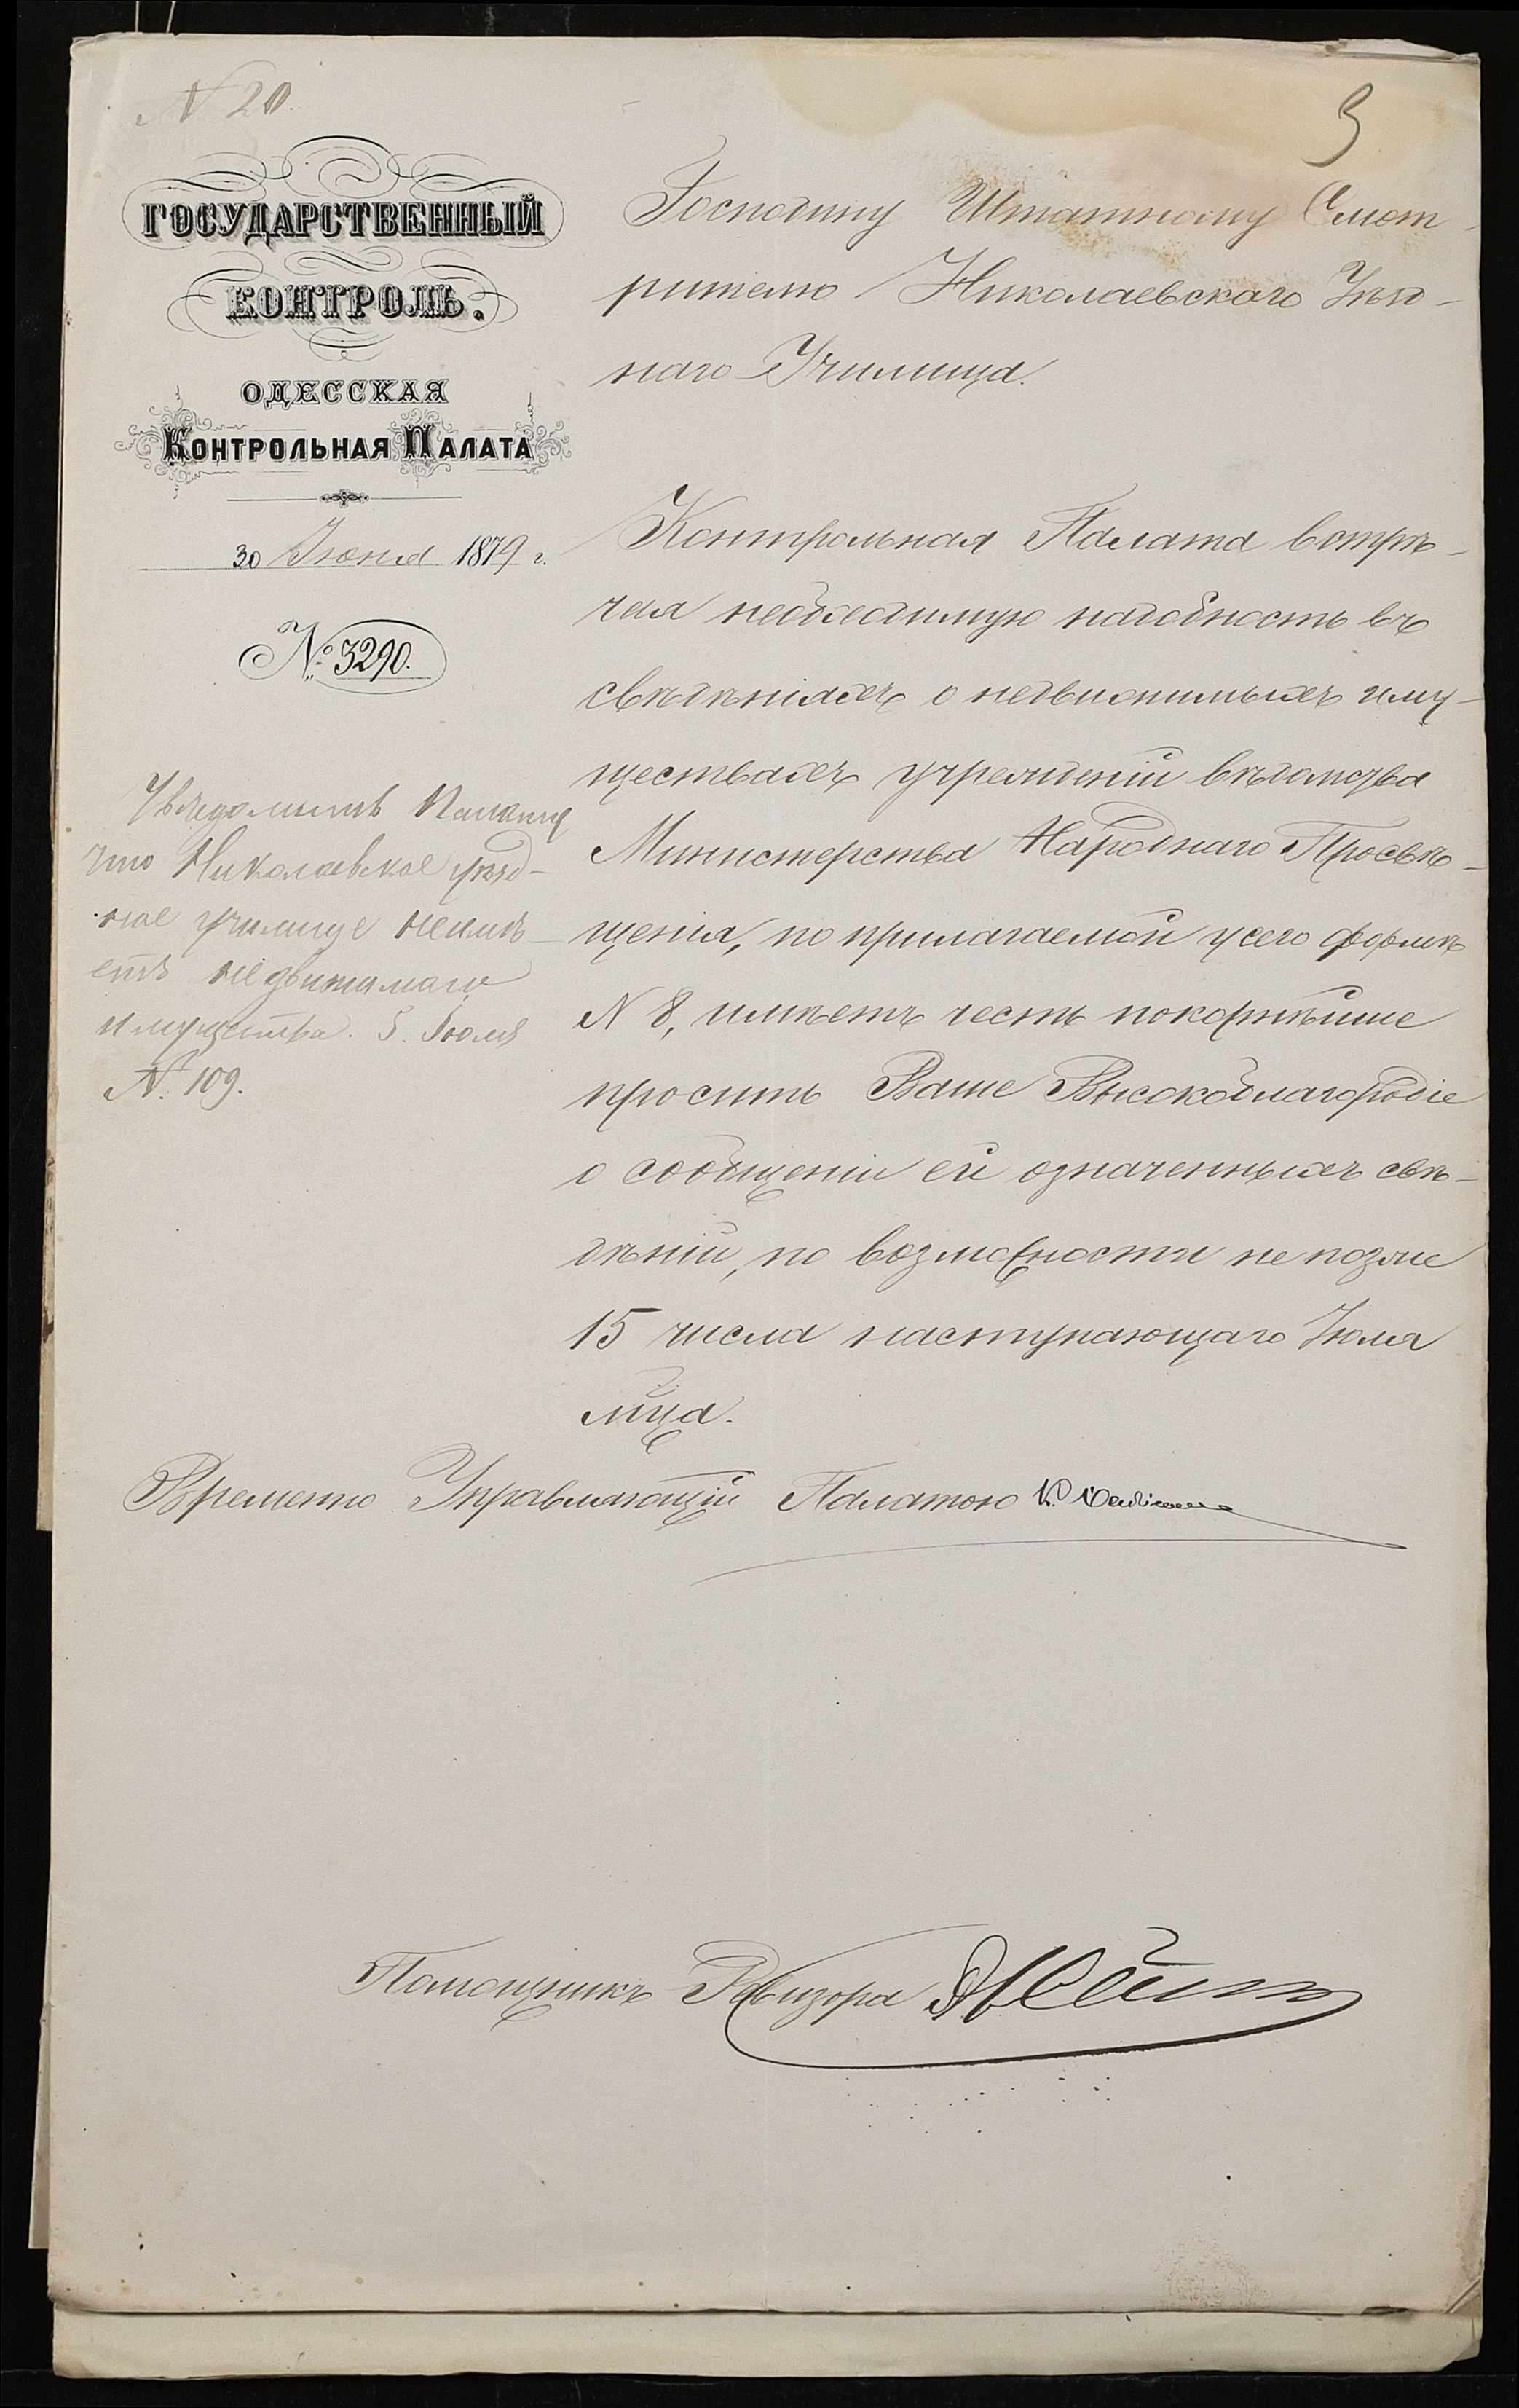 N 20.
3
ГОСУДАРСТВЕННЫЙ
КОНТРОЛЬ.
ОДЕССКАЯ
КОНТРОЛЬНАЯ ПАЛАТА
30 Іюня 1879 г.
№ 3290.
Господину Штатному Смот-
рителю Николаевскаго Уѣзд-
наго Училища.
Контрольная Палата встрѣ-
чая необходимую надобность въ
свѣдѣніяхъ о недвижимыхъ иму-
ществахъ учрежденій вѣдомства
Министерства Народнаго Просвѣ-
щенія, по прилагаемой у сего формѣ
N 8, имѣетъ честь покорнѣйше
просить Ваше Высокоблагородіе
о сообщеніи ей означенныхъ свѣ-
дѣній, по возможности не позже
15 числа наступающаго Іюля
мца.
Временно Управляющій Палатою
Помощникъ Ревизора
Увѣдомить Палату
что Николаевское уѣзд-
ное училище не имѣ-
етъ недвижимаго
имущества. 5 Іюля
N. 109.